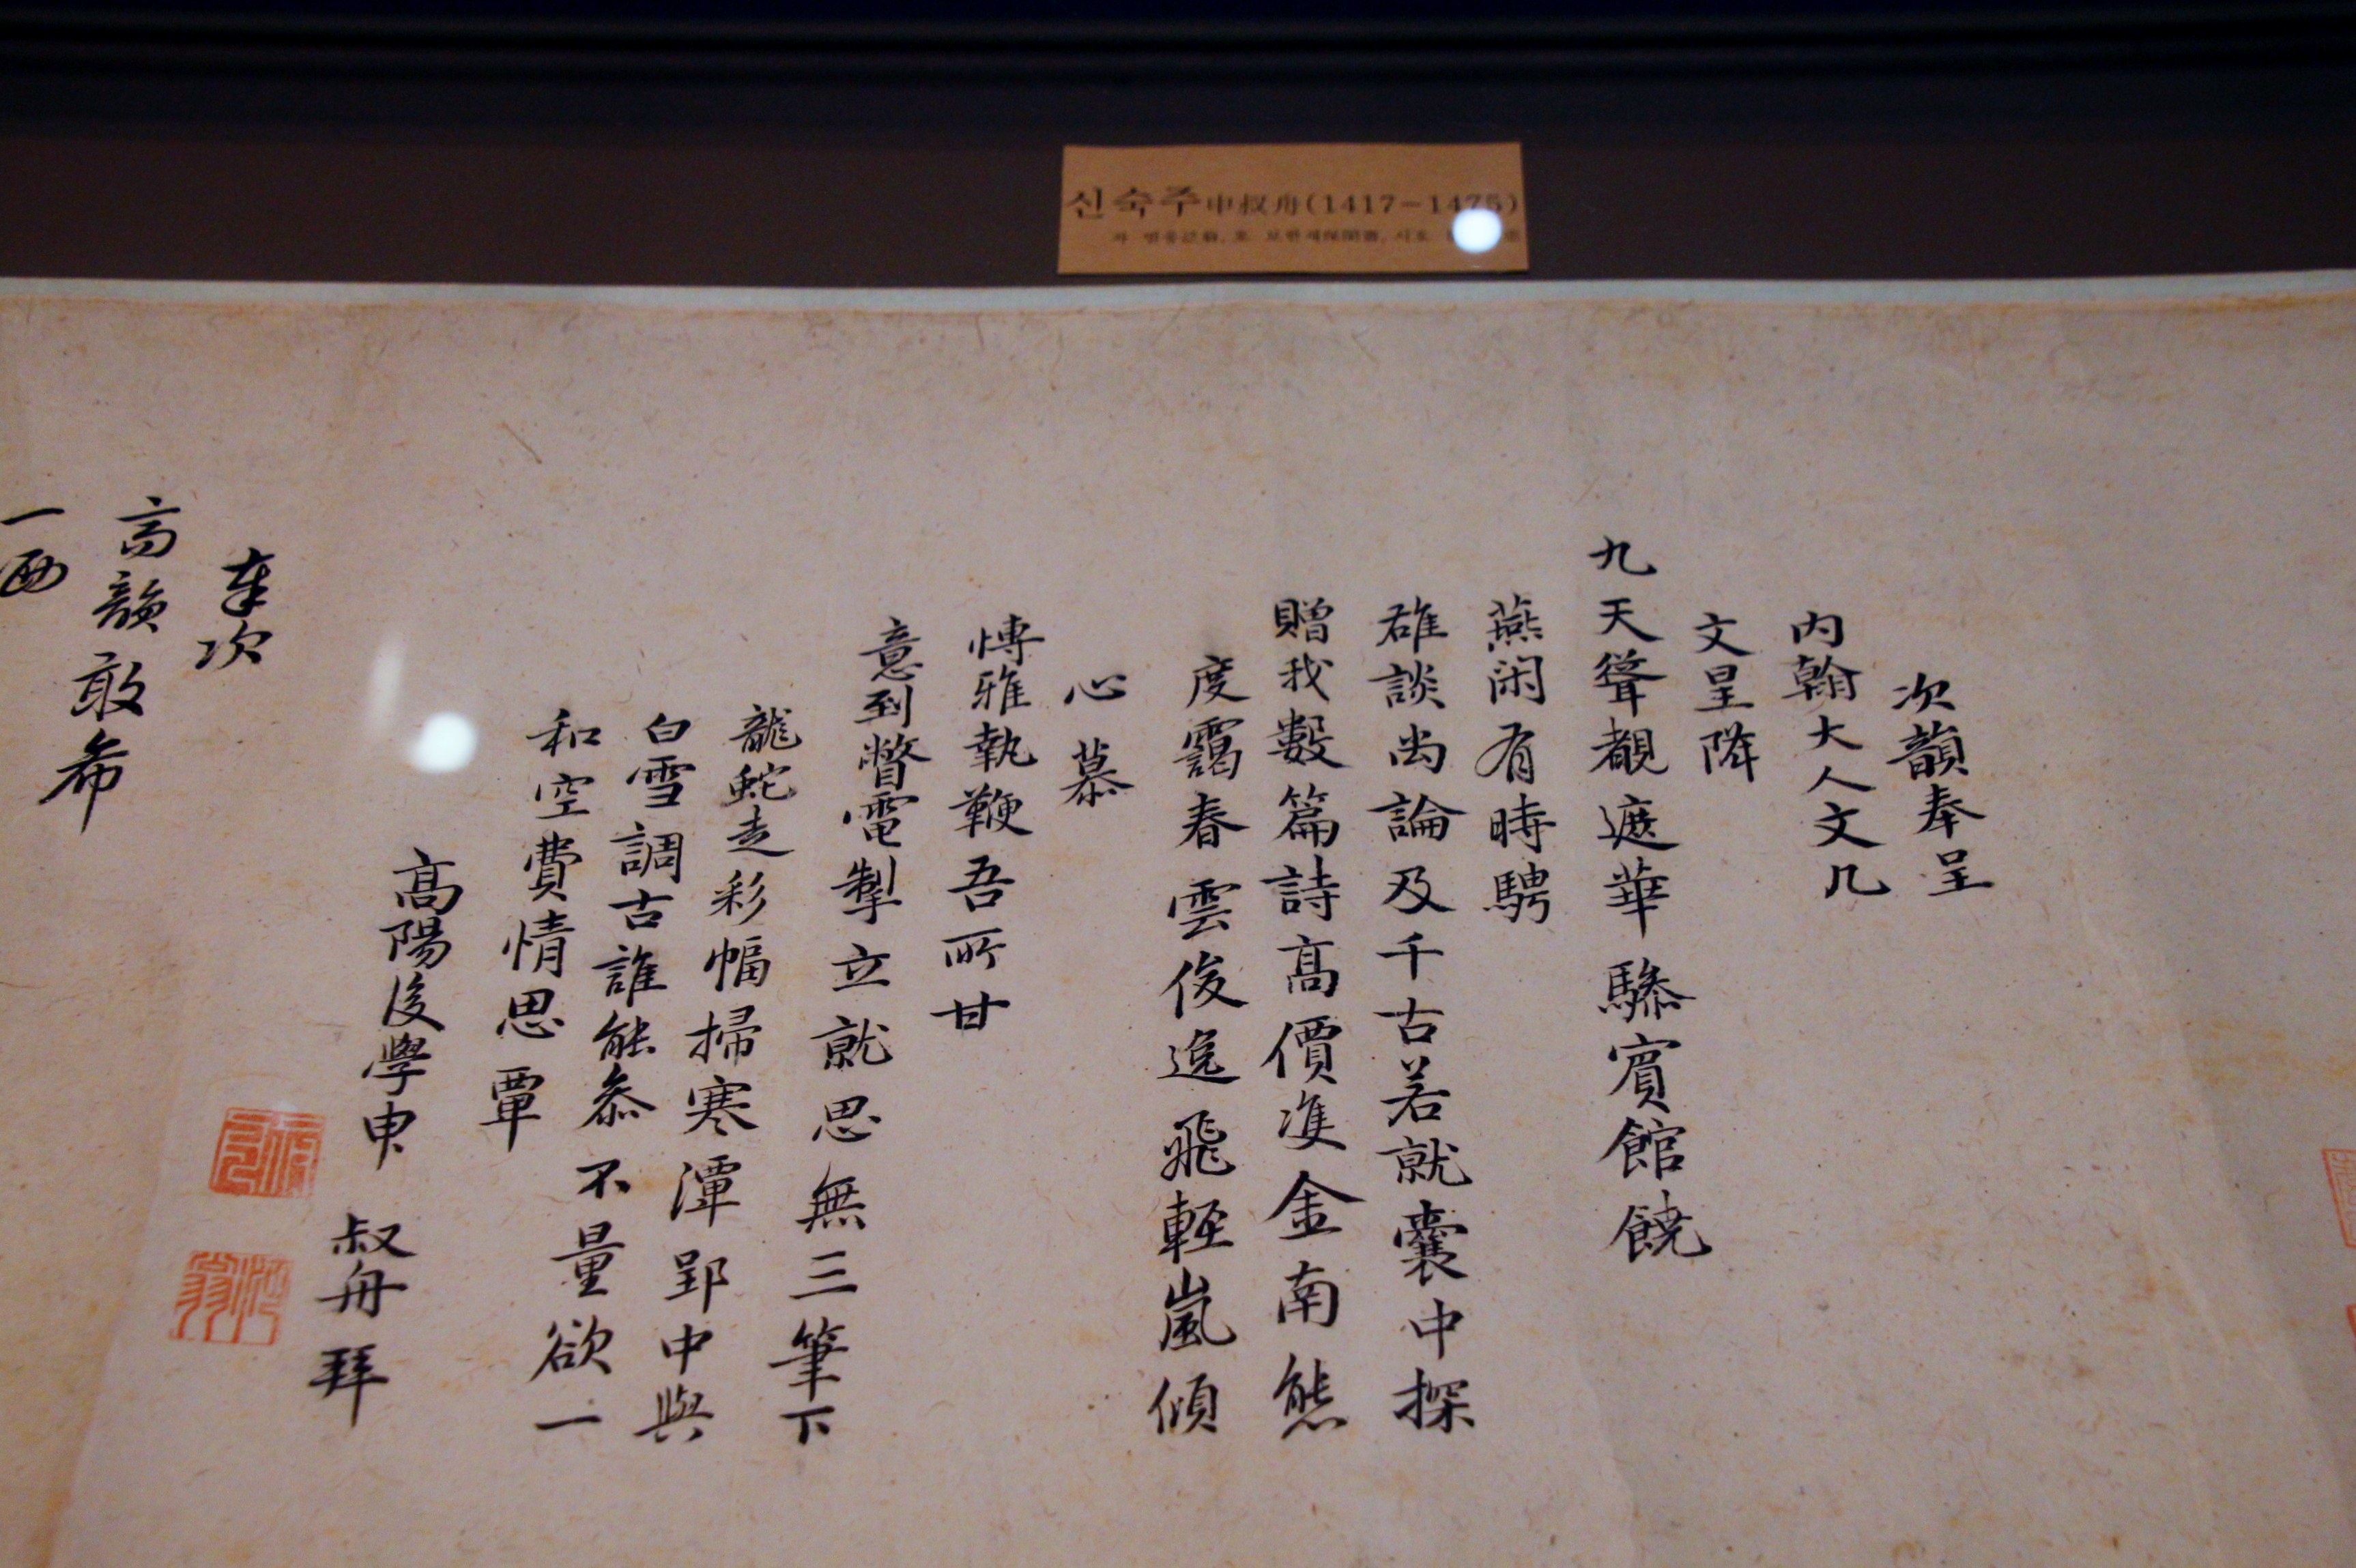 신숙주申叔舟(1417-1475)
次韻奉呈
内翰大人文几
文星降
九天聳覩遮華驂賓館饒
燕閑有時騁
雄談尚論及千古若就囊中探
贈我數篇詩高價㕠金南態
度靄春雲俊逸飛軽嵐傾
心慕
博雅執鞭吾所甘
意到瞥電掣立就思無三筆下
龍蛇走彩幅掃寒潭郢中與
白雪調古誰能叅不量欲一
和空費情思覃
高陽後學申叔舟拜
奉次
高韻敢希
一